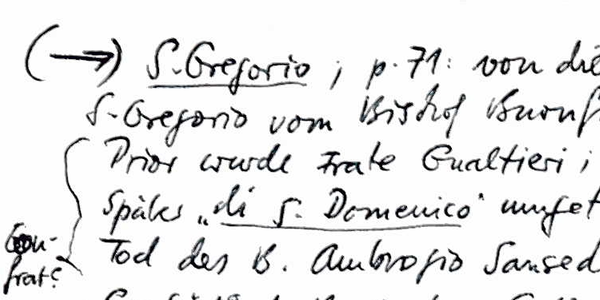 (→) S. Gregorio ; p. 71: von die
S. Gregorio vom Bischof Buonf
Prior wurde Frate Gualtieri ;
Später „di S. Domenico“ umget
Tod des B. Ambrogio Sansed